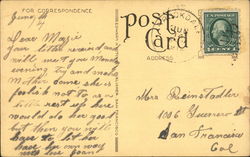 FOR CORRESPONDENCE
Post
Card
ADDRESS
June 14
Dear Mazie
your letter received and
will meet you Monday
evening try and make
Mother come she is
foolish not to a
little rest up here
would do her good
but then you will
have to let her
have her own way
with love
Mrs Beinstadler
1086 Guerrero St
San Francisco
Cal